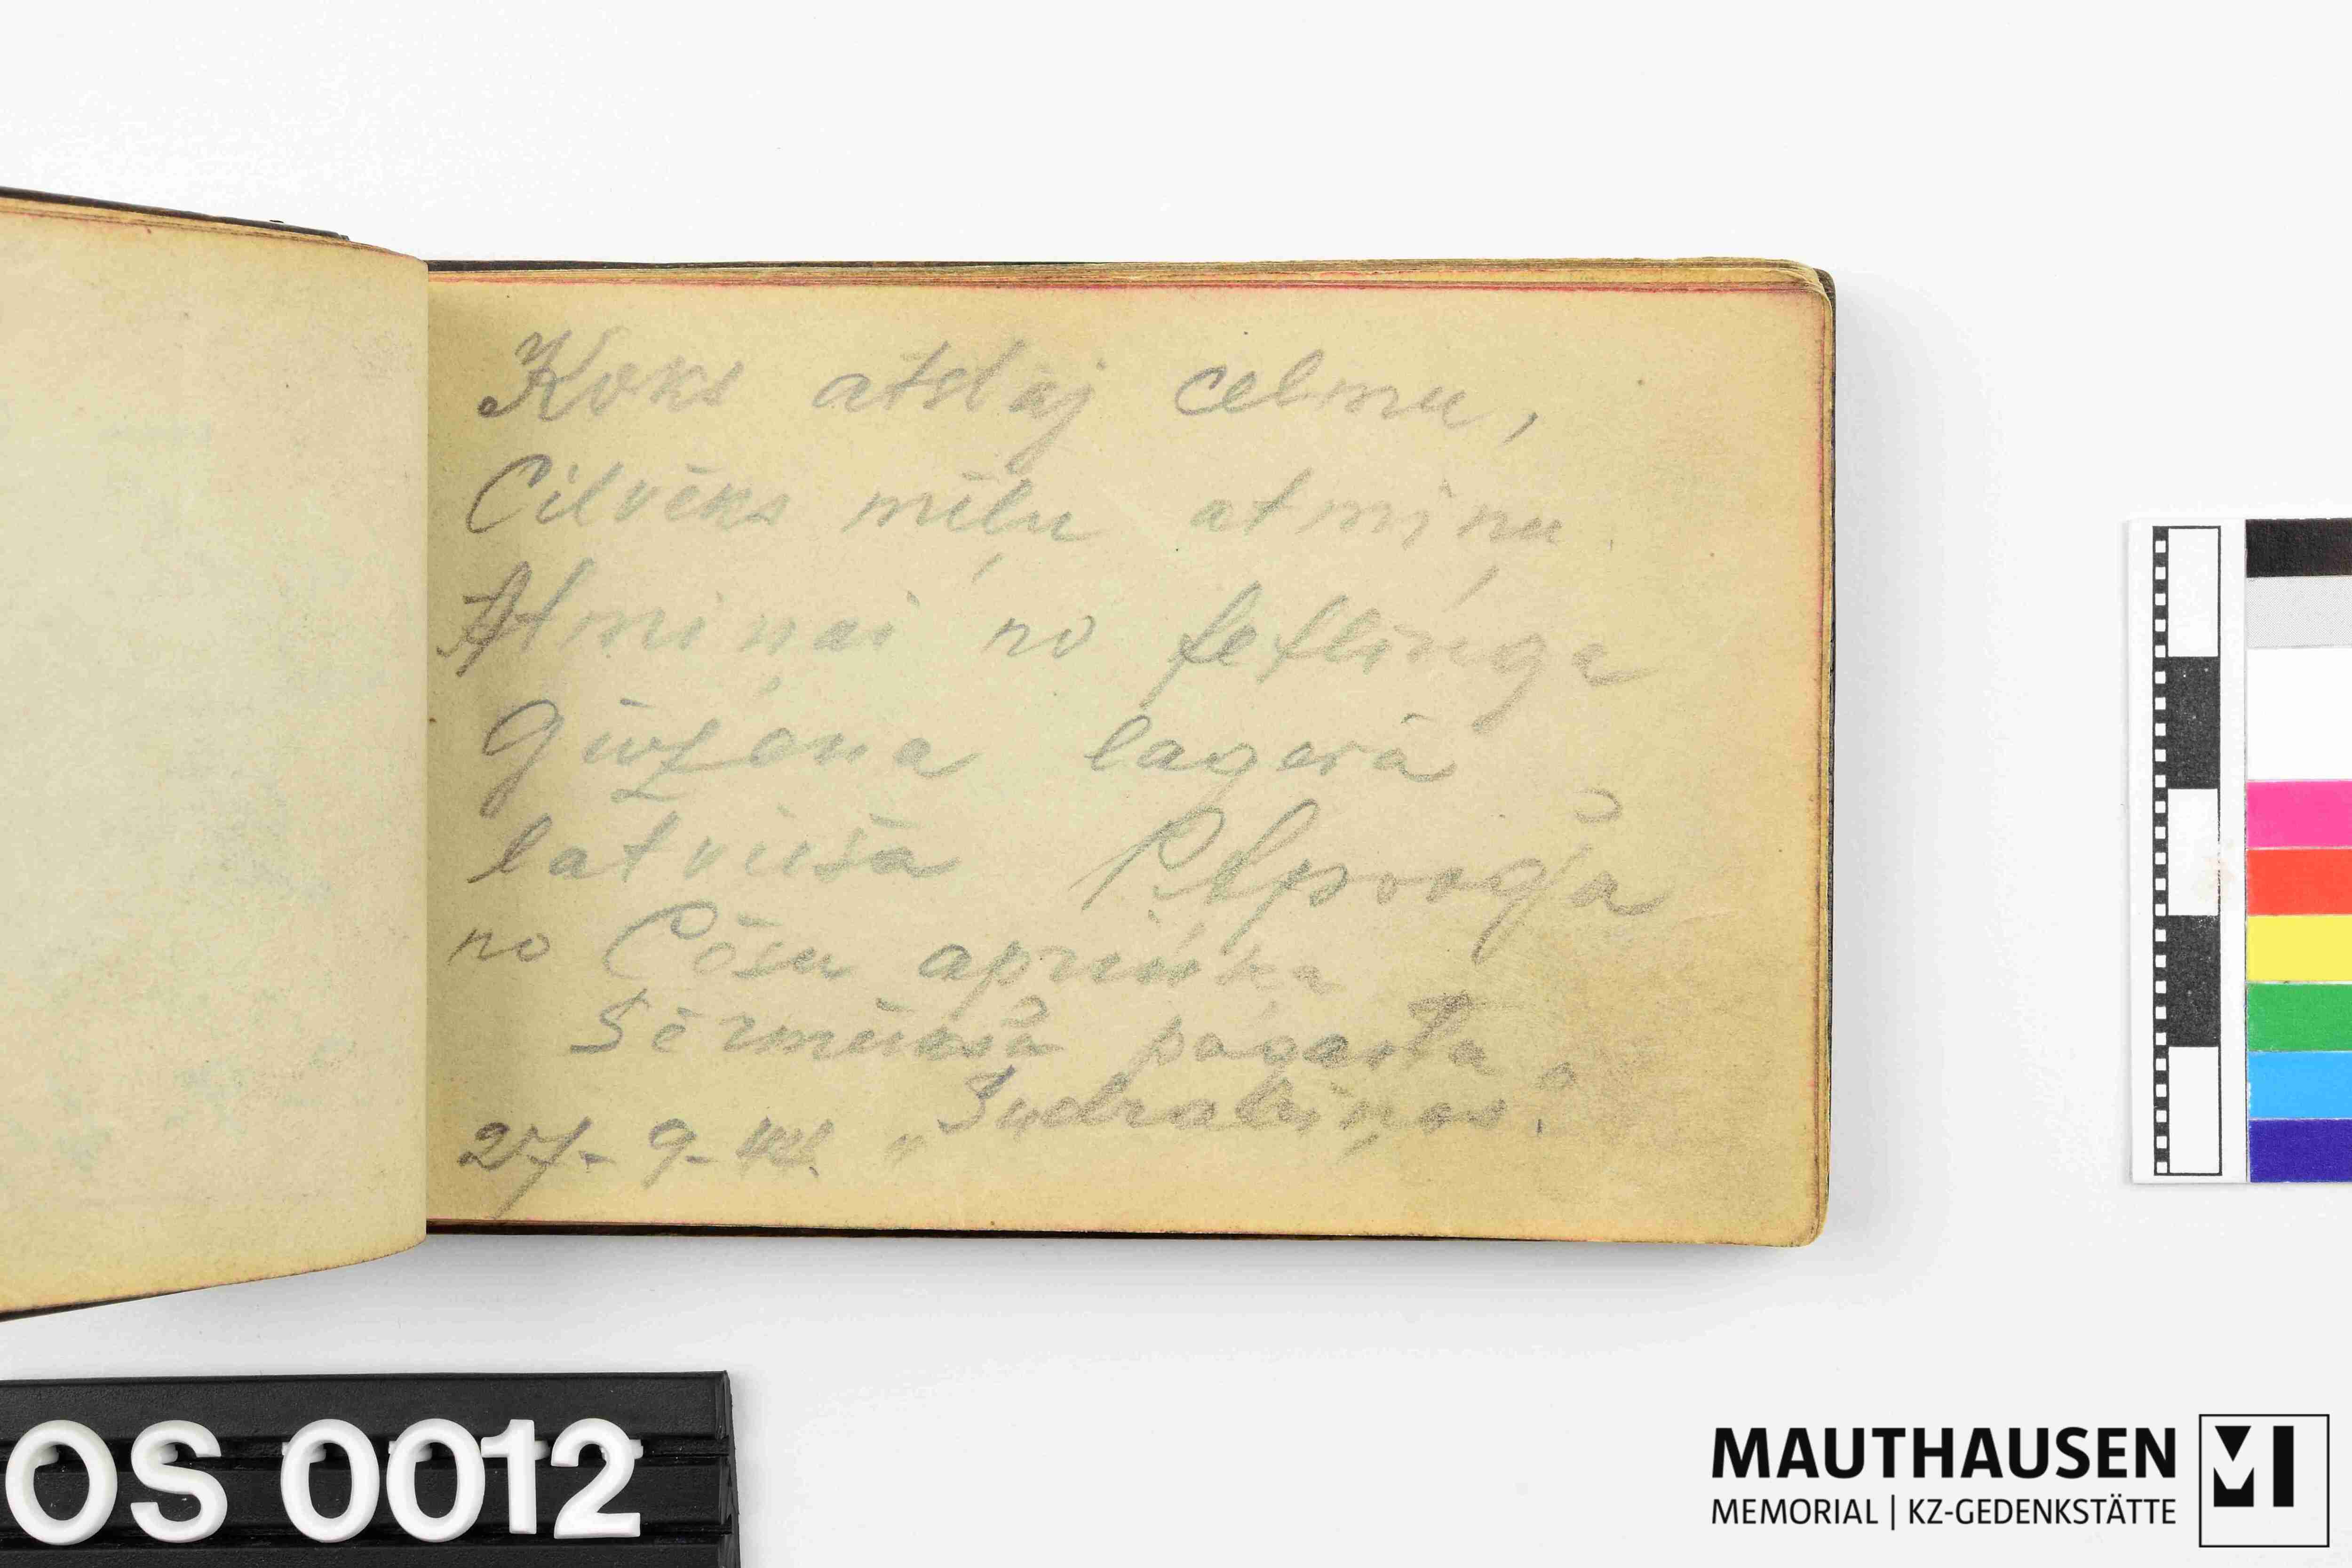 Koks atstāj celmu,
Cilvēks mīļu atmiņu
Atmiņai no feftlinga
Guzena lagerā
latvieša
no Cēsu apriņķa
Sērmūkšā pagasta
27- 9- 44. „Sudrabiņos."
OS 0012
MAUTHAUSEN
MEMORIAL | KZ-GEDENKSTÄTTE